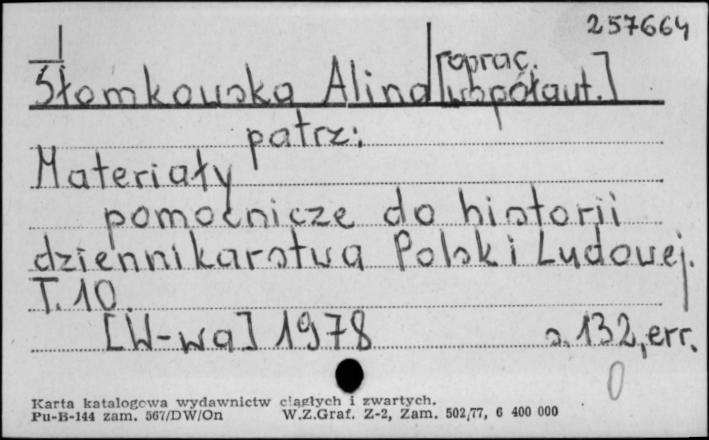 257664
Słomkowska Alina [oprac. współaut.]
patrz:
Materiały
pomocnicze do historii
dziennikarstwa Polski Ludowej.
T. 10.
[W-wa] 1978 s. 132, err.
0
Karta katalogowa wydawnictw ciągłych i zwartych.
Pu-B-144 zam. 567/DW/On W.Z.Graf. Z-2, Zam. 502/77, 6 400 000